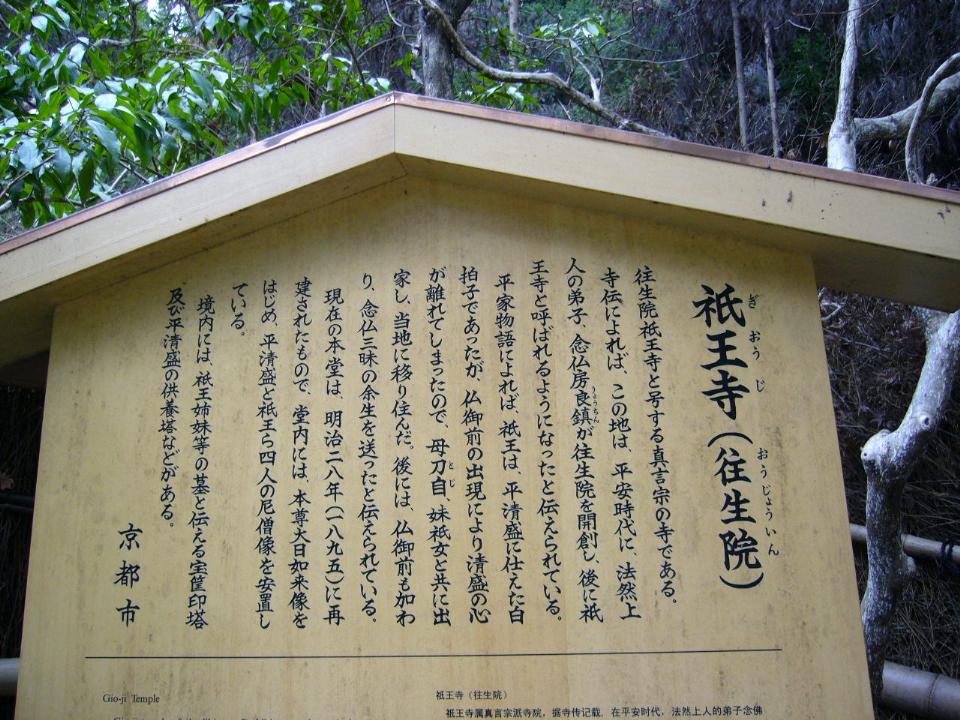 祇王寺(往生院)
ぎおうじ
おうじょういん
往生院祇王寺と号する真言宗の寺である。
寺伝によれば、この地は、平安時代に、法然上
人の弟子、念仏房良鎮が往生院を開創し、後に祇
りょうちん
王寺と呼ばれるようになったと伝えられている。
平家物語によれば、祇王は、平清盛に仕えた白
拍子であったが、仏御前の出現により清盛の心
が離れてしまったので、母刀自、妹祇女と共に出
とじ
家し、当地に移り住んだ。後には、仏御前も加わ
り、念仏三昧の余生を送ったと伝えられている。
現在の本堂は、明治二八年(一八九五)に再
建されたもので、堂内には、本尊大日如来像を
はじめ、平清盛と祇王ら四人の尼僧像を安置し
ている。
境内には、祇王姉妹等の墓と伝える宝筐印塔
及び平清盛の供養塔などがある。
京都市
Gio-ji Temple
祇王寺(往生院)
祇王寺属真言宗派寺院,据寺传记载,在平安时代,法然上人的弟子念佛